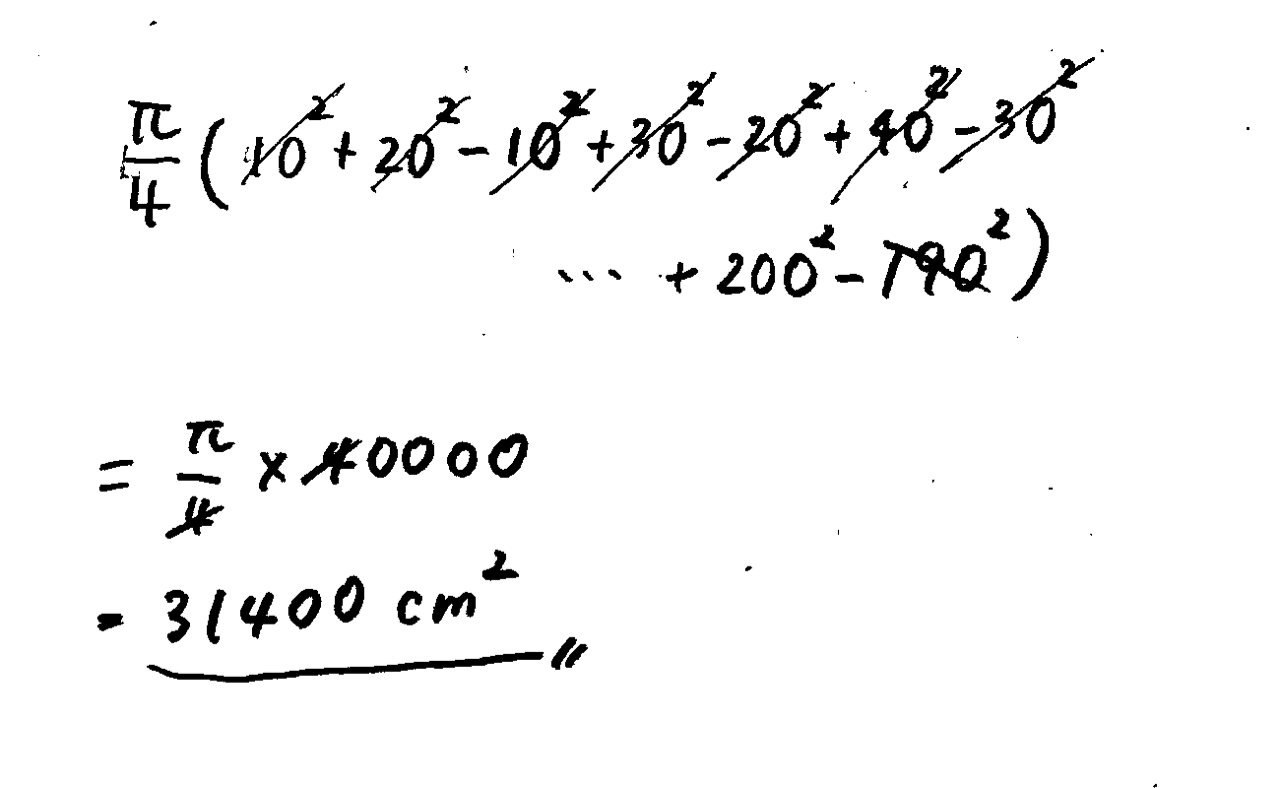 π/4 ( 10² + 20² - 10² + 30² - 20² + 40² - 30²
... + 200² - 190² )
= π/4 × 40000
= 31400 cm²